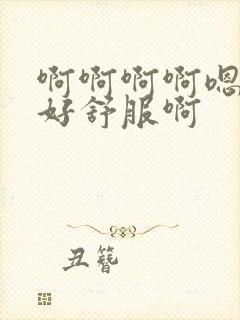 啊啊啊啊嗯
好舒服啊
丑簪